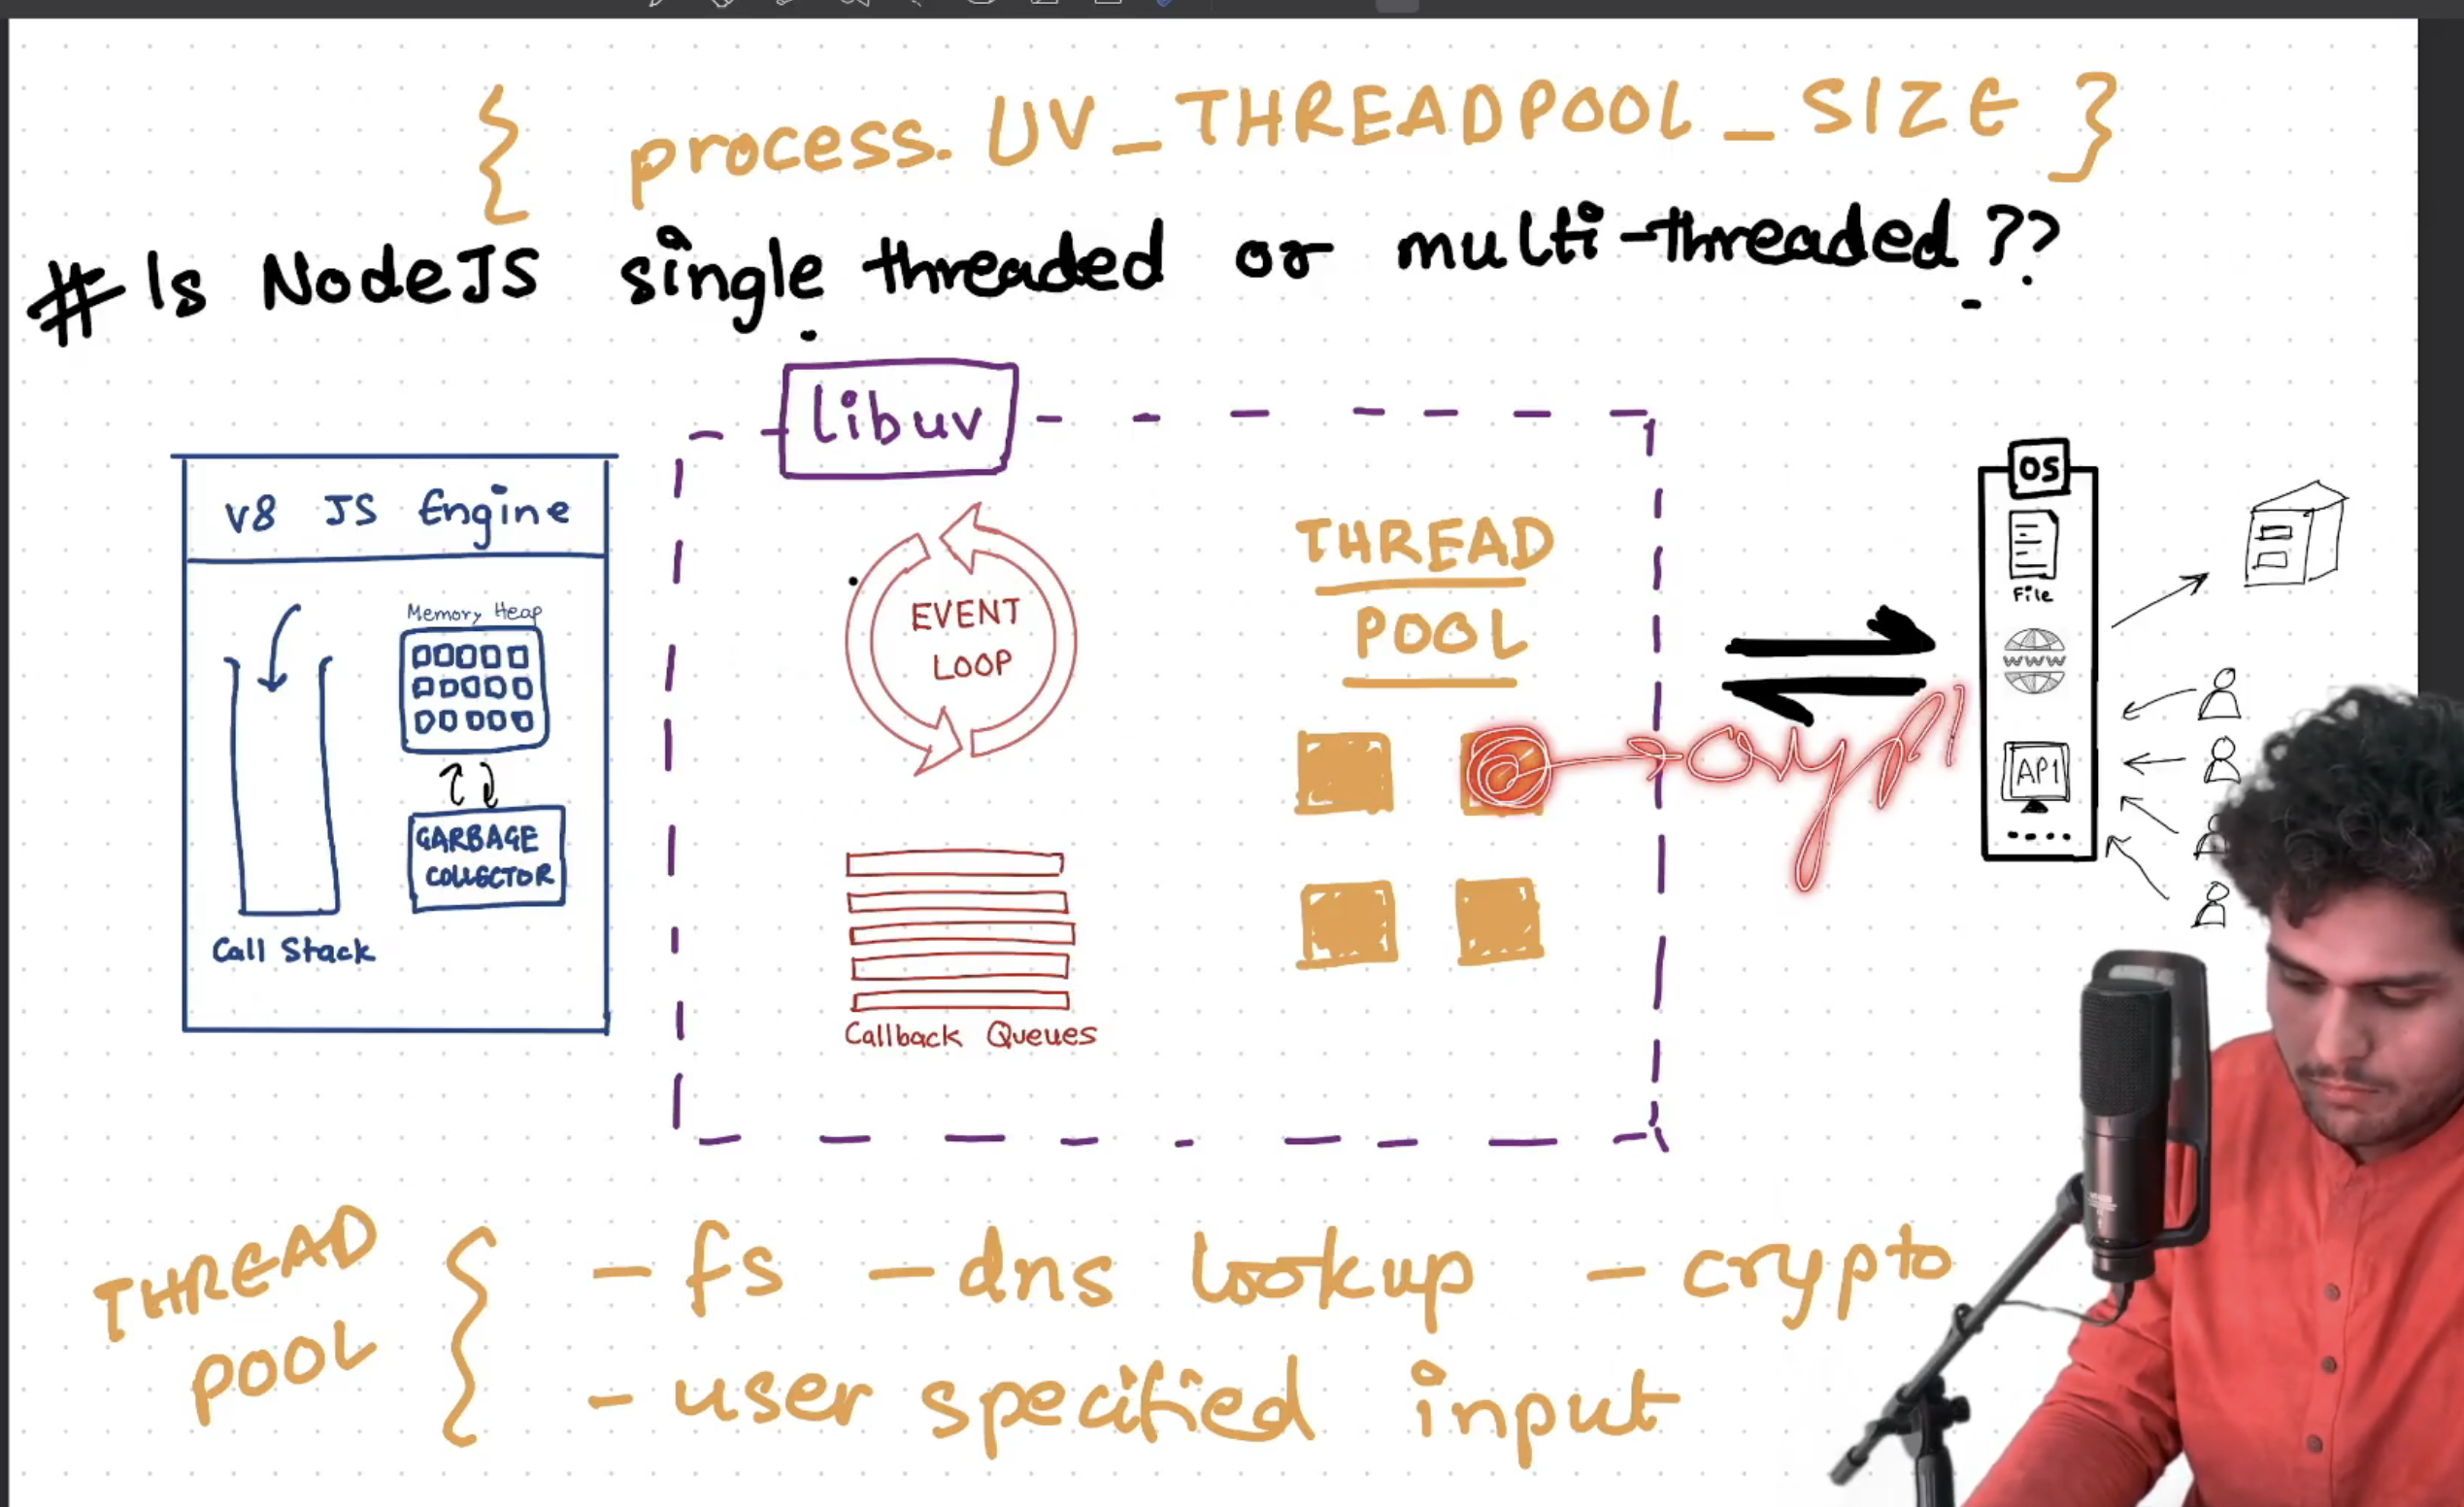 { process. UV_THREADPOOL_SIZE }
# Is NodeJS single threaded or multi-threaded ??
libuv
V8 JS Engine
Memory Heap
GARBAGE
COLLECTOR
Call Stack
EVENT
LOOP
Callback Queues
THREAD
POOL
cryp
OS
File
www
API
THREAD
POOL
- fs - dns lookup - crypto
- user specified input